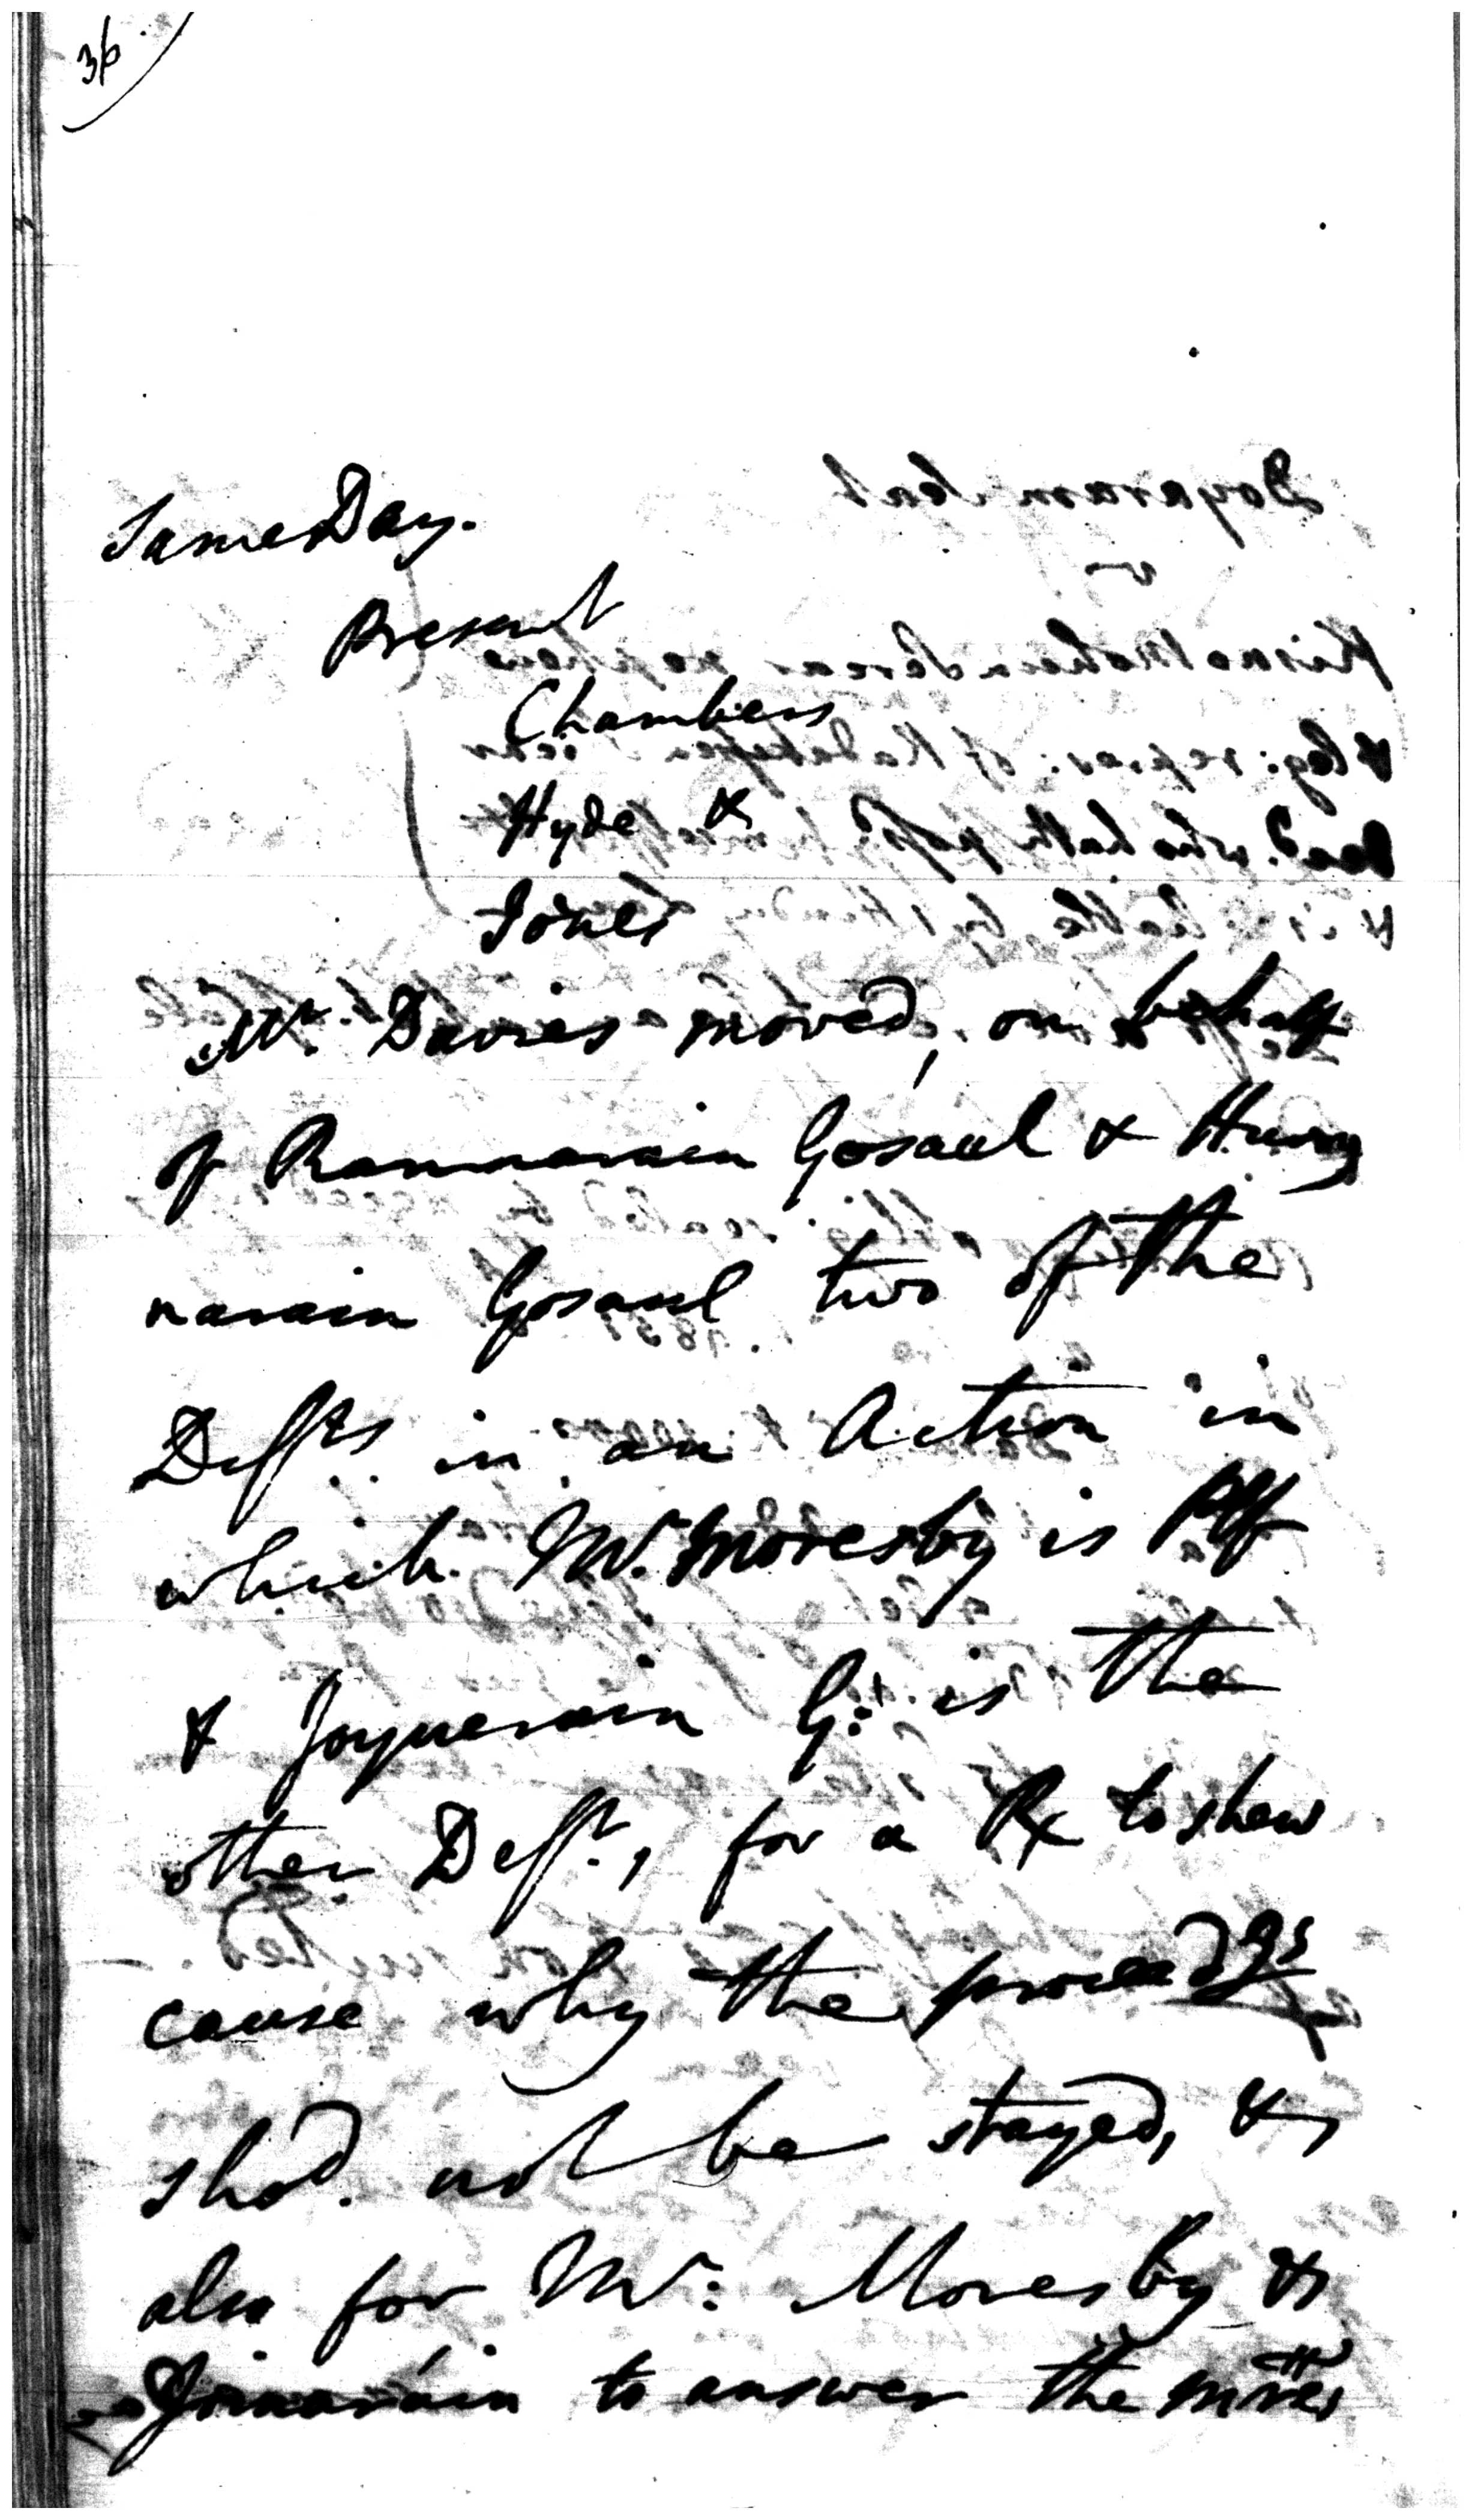 36
Same Day.
Present
Chambers
Hyde &
Jones
Mr. Davies moved, on behalf
of Ramnarain Gosaul & Hurry
narain Gosaul two of the
Defts. in an Action in
which Mr. Moresby is Plf
& Joynerain G: is the
other Deft., for a Rx to shew
cause why the proceedgs
shod. not be stayed, &
also for Mr: Moresby &
Joinarain to answer the mrs